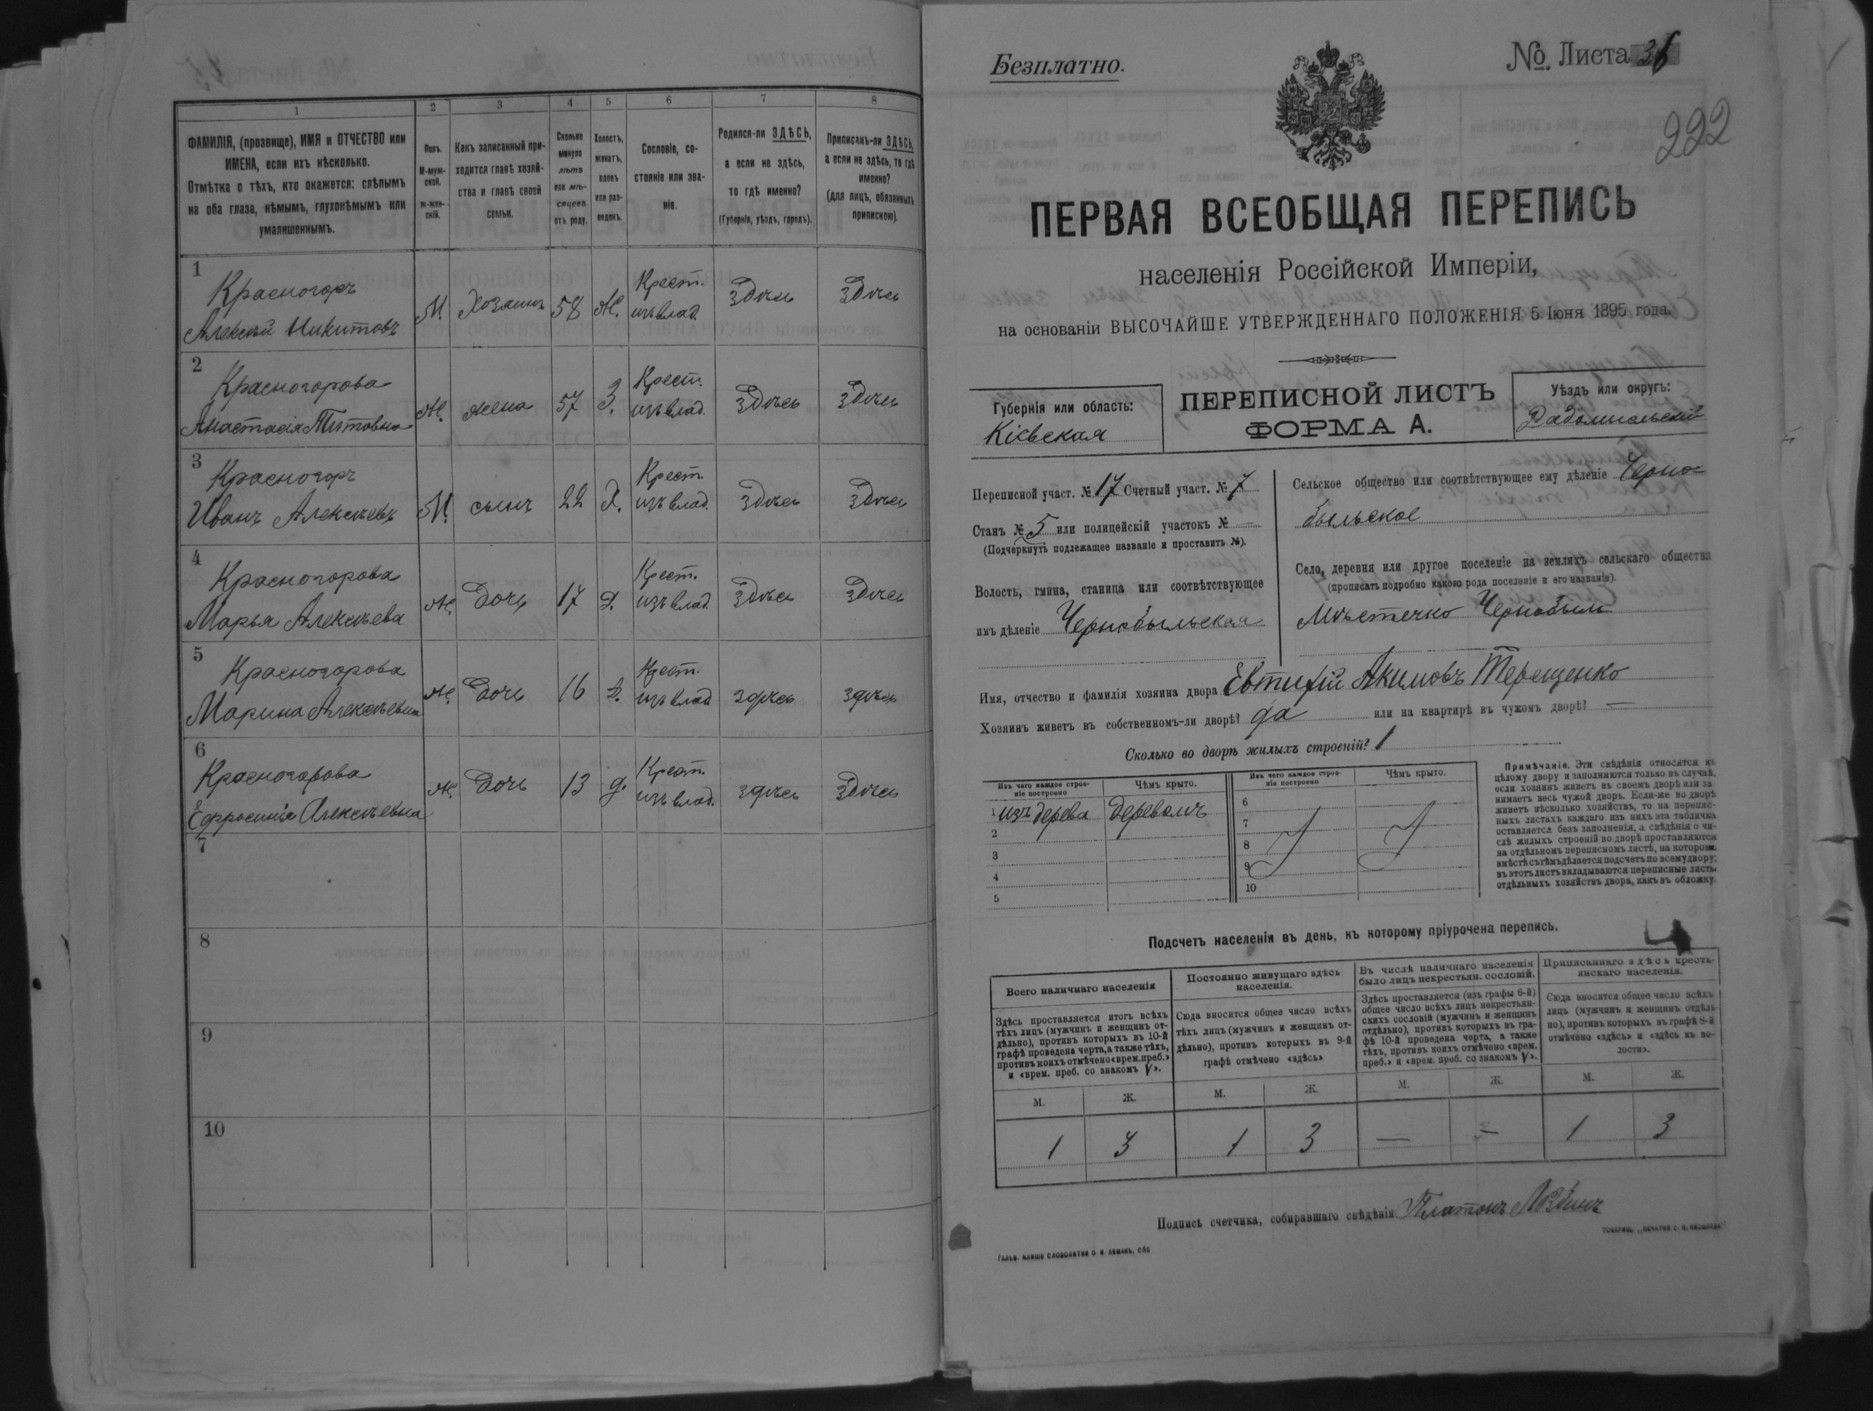 1 2 3 4 5 6 7 8
ФАМИЛІЯ, (прозвище), ИМЯ и ОТЧЕСТВО или
ИМЕНА, если ихъ нѣсколько.
Отмѣтка о тѣхъ, кто окажется: слѣпымъ
на оба глаза, нѣмымъ, глухонѣмымъ или
умалишеннымъ.
Полъ.
М-муж-
ской.
ж-жен-
скій.
Какъ записанный при-
ходится главѣ хозяй-
ства и главѣ своей
семьи.
Сколько
минуло
лѣтъ
или мѣ-
сяцевъ
отъ роду.
Холостъ,
женатъ,
вдовъ
или раз-
веденъ.
Сословіе, со-
стояніе или зва-
ніе.
Родился-ли ЗДѢСЬ,
а если не здѣсь,
то гдѣ именно?
(Губернія, уѣздъ, городъ).
Приписанъ-ли ЗДѢСЬ,
а если не здѣсь, то гдѣ
именно?
(для лицъ, обязанныхъ
припискою).
1
Красногоръ
Алексѣй Никитовъ
М.
Хозяинъ
58
Ж.
Крест.
изъ влад.
Здѣсь
Здѣсь
2
Красногорова
Анастасія Титовна
Ж.
жена
57
З.
Крест.
изъ влад.
Здѣсь
Здѣсь
3
Красногоръ
Иванъ Алексѣевъ
М.
сынъ
22
Х.
Крест.
изъ влад.
Здѣсь
Здѣсь
4
Красногорова
Марья Алексѣева
Ж.
Дочь
17
Д.
Крест.
изъ влад.
Здѣсь
Здѣсь
5
Красногорова
Марина Алексѣевна
Ж.
Дочь
16
Д.
Крест.
изъ влад.
здѣсь
здѣсь
6
Красногорова
Ефросинія Алексѣевна
Ж.
Дочь
13
Д.
Крест.
изъ влад.
здѣсь
Здѣсь
7
8
9
10
Безплатно.
№ Листа 36
222
ПЕРВАЯ ВСЕОБЩАЯ ПЕРЕПИСЬ
населенія Россійской Имперіи,
на основаніи ВЫСОЧАЙШЕ УТВЕРЖДЕННАГО ПОЛОЖЕНІЯ 5 Іюня 1895 года.
Губернія или область:
Кіевская
ПЕРЕПИСНОЙ ЛИСТЪ
ФОРМА А.
Уѣздъ или округъ:
Радомысльскій
Переписной участ. № 17 Счетный участ. № 7
Станъ № 5 или полицейскій участокъ № —
(Подчеркнуть подлежащее названіе и проставить №).
Волость, гмина, станица или соотвѣтствующее
имъ дѣленіе Чернобыльская
Сельское общество или соотвѣтствующее ему дѣленіе Черно-
быльское
Село, деревня или другое поселеніе на земляхъ сельскаго общества
(прописать подробно какого рода поселеніе и его названіе).
Мѣстечко Чернобыль
Имя, отчество и фамилія хозяина двора Евтихій Акимовъ Терещенко
Хозяинъ живетъ въ собственномъ-ли дворѣ? да или на квартирѣ въ чужомъ дворѣ? —
Сколько во дворѣ жилыхъ строеній? 1
Изъ чего каждое строе-
ніе построено
Чѣмъ крыто.
Изъ чего каждое строе-
ніе построено
Чѣмъ крыто.
1 изъ дерева Деревомъ 6
2 7
3 8
4 9
5 10
Примѣчаніе. Эти свѣдѣнія относятся къ
цѣлому двору и заполняются только въ случаѣ,
если хозяинъ живетъ въ своемъ дворѣ или за-
нимаетъ весь чужой дворъ. Если-же во дворѣ
живетъ нѣсколько хозяйствъ, то на перепис-
ныхъ листахъ каждаго изъ нихъ эта табличка
оставляется безъ заполненія, а свѣдѣнія о чи-
слѣ жилыхъ строеній во дворѣ проставляются
на отдѣльномъ переписномъ листѣ, на которомъ
вмѣстѣ съ тѣмъ дѣлается подсчетъ по всему двору;
въ этотъ листъ вкладываются переписные листы
отдѣльныхъ хозяйствъ двора, какъ въ обложку.
Подсчетъ населенія въ день, къ которому пріурочена перепись.
4
Всего наличнаго населенія
Здѣсь проставляется итогъ всѣхъ
тѣхъ лицъ (мужчинъ и женщинъ от-
дѣльно), противъ которыхъ въ 10-й
графѣ проведена черта, а также тѣхъ,
противъ коихъ отмѣчено «врем. преб.»
и «врем. преб. со знакомъ V».
Постоянно живущаго здѣсь
населенія.
Сюда вносится общее число всѣхъ
тѣхъ лицъ (мужчинъ и женщинъ от-
дѣльно), противъ которыхъ въ 9-й
графѣ отмѣчено «здѣсь»
Въ числѣ наличнаго населенія
было лицъ некрестьян. сословій.
Здѣсь проставляется (изъ графы 6-й)
общее число всѣхъ лицъ некрестьян-
скихъ сословій (мужчинъ и женщинъ
отдѣльно), противъ которыхъ въ гра-
фѣ 10-й проведена черта, а также
тѣхъ, противъ коихъ отмѣчено «врем.
преб.» и «врем. преб. со знакомъ V».
Приписаннаго здѣсь кресть-
янскаго населенія.
Сюда вносится общее число всѣхъ
лицъ (мужчинъ и женщинъ отдѣль-
но), противъ которыхъ въ графѣ 8-й
отмѣчено «здѣсь» и «здѣсь въ во-
лости».
М. Ж. М. Ж. М. Ж. М. Ж.
1 3 1 3 — — 1 3
Подпись счетчика, собиравшаго свѣдѣнія Платонъ